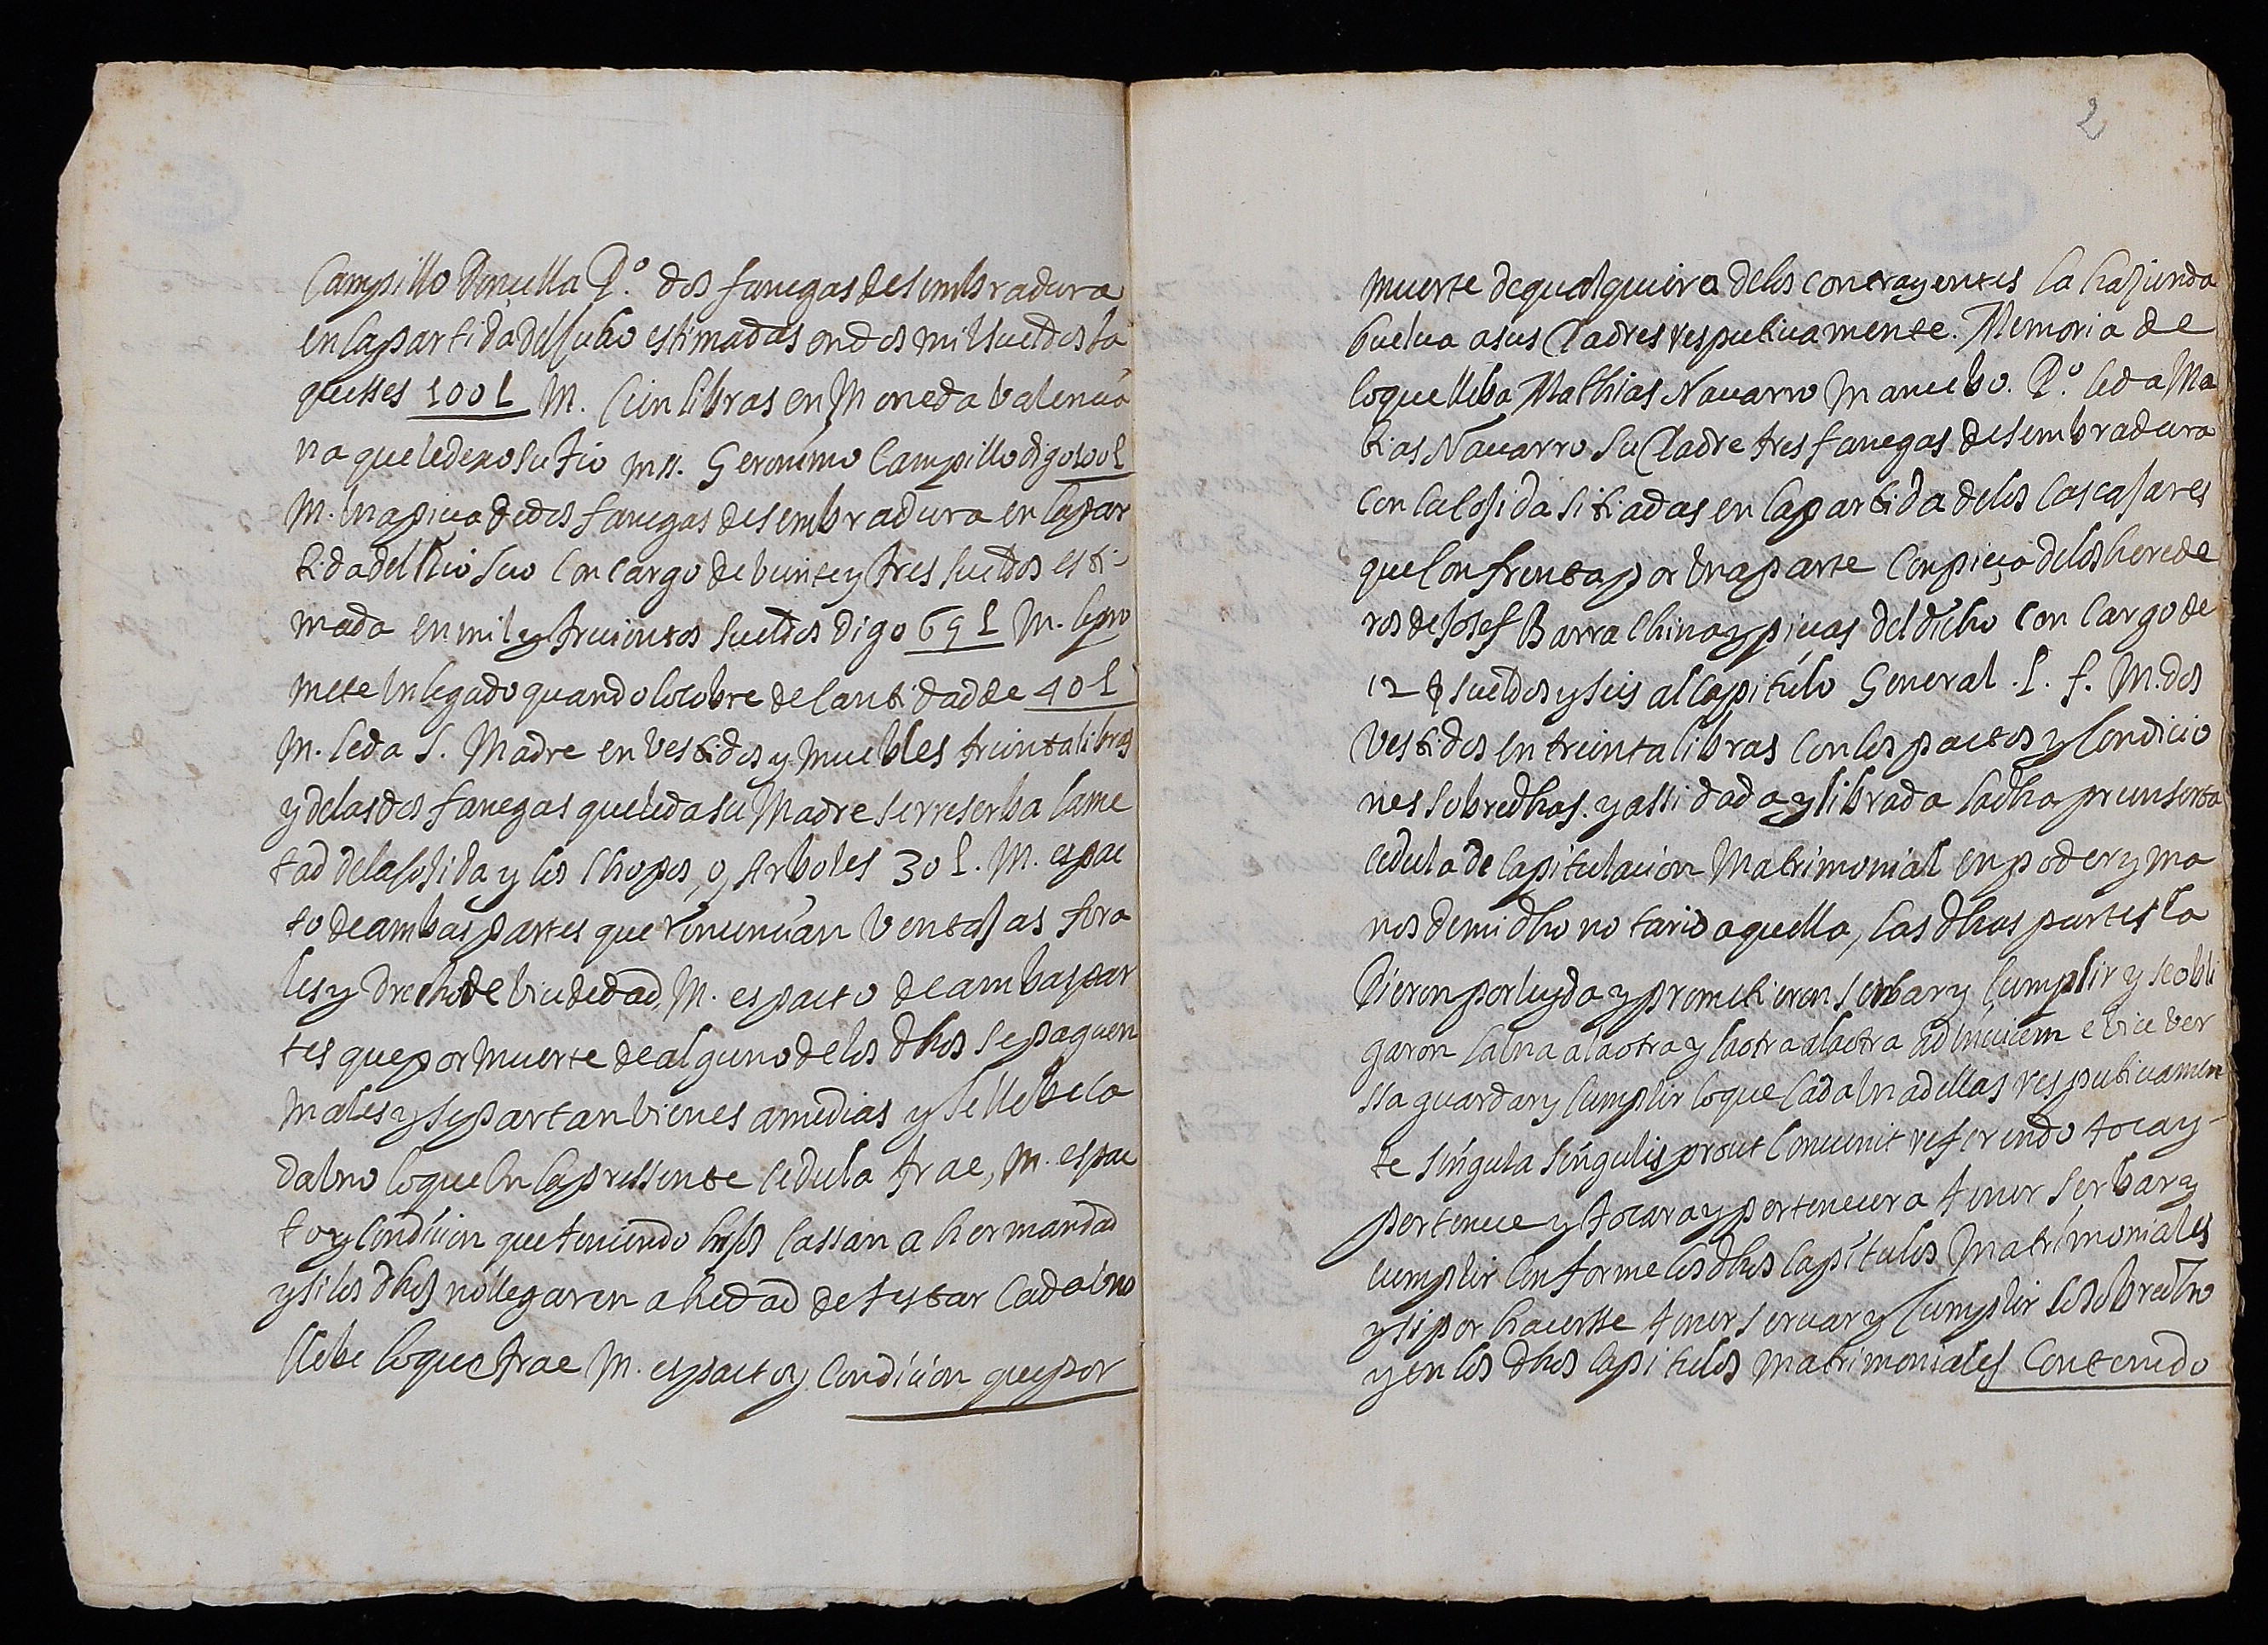 Campillo Donçella P.º dos fanegas de sembradura
en la partida del estimadas en dos mil sueldos Ja
quesses 100 L M. Cien libras en Moneda Valencia
na que le dexo su Tio Mn. Geronimo Campillo digo 100 L
M. Vna pieça de dos fanegas de sembradura en la par
tida del Rio seco con cargo de veinte y tres sueldos esti-
mada en mil y trecientos sueldos digo 69 L M. le pro
mete Vn legado quando lo cobre de cantidad de 40 L
M. le da S. Madre en Vestidos y muebles treinta libras
y de las dos fanegas que le da su Madre se rreserba la me
tad de la cojida y los Chopos, o, Arboles 30 L. M. es pac
to de ambas partes que rrenuncian Ventajas fora
les y drecho de viudedad, M. es pacto de ambas par
tes que por muerte de alguno de los dhos se paguen
males y se partan bienes a medias y se llebe ca
da uno lo que en la pressente cedula trae, M. es pac
to y condicion que teniendo hijos cassan a hermandad
y si los dhos no llegaren a hedad de testar Cada vno
llebe lo que trae M. es pacto y condicion que por
2
muerte de qualquiera de los contrayentes la hazienda
buelua a sus Padres respectiuamente. Memoria de
lo que lleba Mathias Nauarro Mancebo. P.º le da Ma
tias Nauarro su Padre tres fanegas de sembradura
con la cojida sitiadas en la partida de los Cascajares
que confrenta por Vna parte con pieça de los herede
ros de Josef Barrachina y pieças del dicho con cargo de
12 sueldos y seis al Capitulo General. L. f. M. dos
Vestidos en treinta libras con los pactos y Condicio
nes sobredhas. y assi dada y librada la dha preinserta
cedula de Capitulacion Matrimonial en poder y ma
nos de mi dho notario aquella, las dhas partes la
Dieron por leyda y prometieron serbar y Cumplir y se obli
garon la una a la otra y la otra a la otra ad inuicem e vice ver
ssa guardar y Cumplir lo que Cada Vna dellas respectiuamen
te singula singulis prout Conuenit referendo toca y
pertenece y tocara y pertenecera tener serbar y
cumplir Conforme los dhos Capitulos Matrimoniales
y si por hacersse tener seruar y Cumplir lo sobredho
y en los dhos Capitulos Matrimoniales Contenido